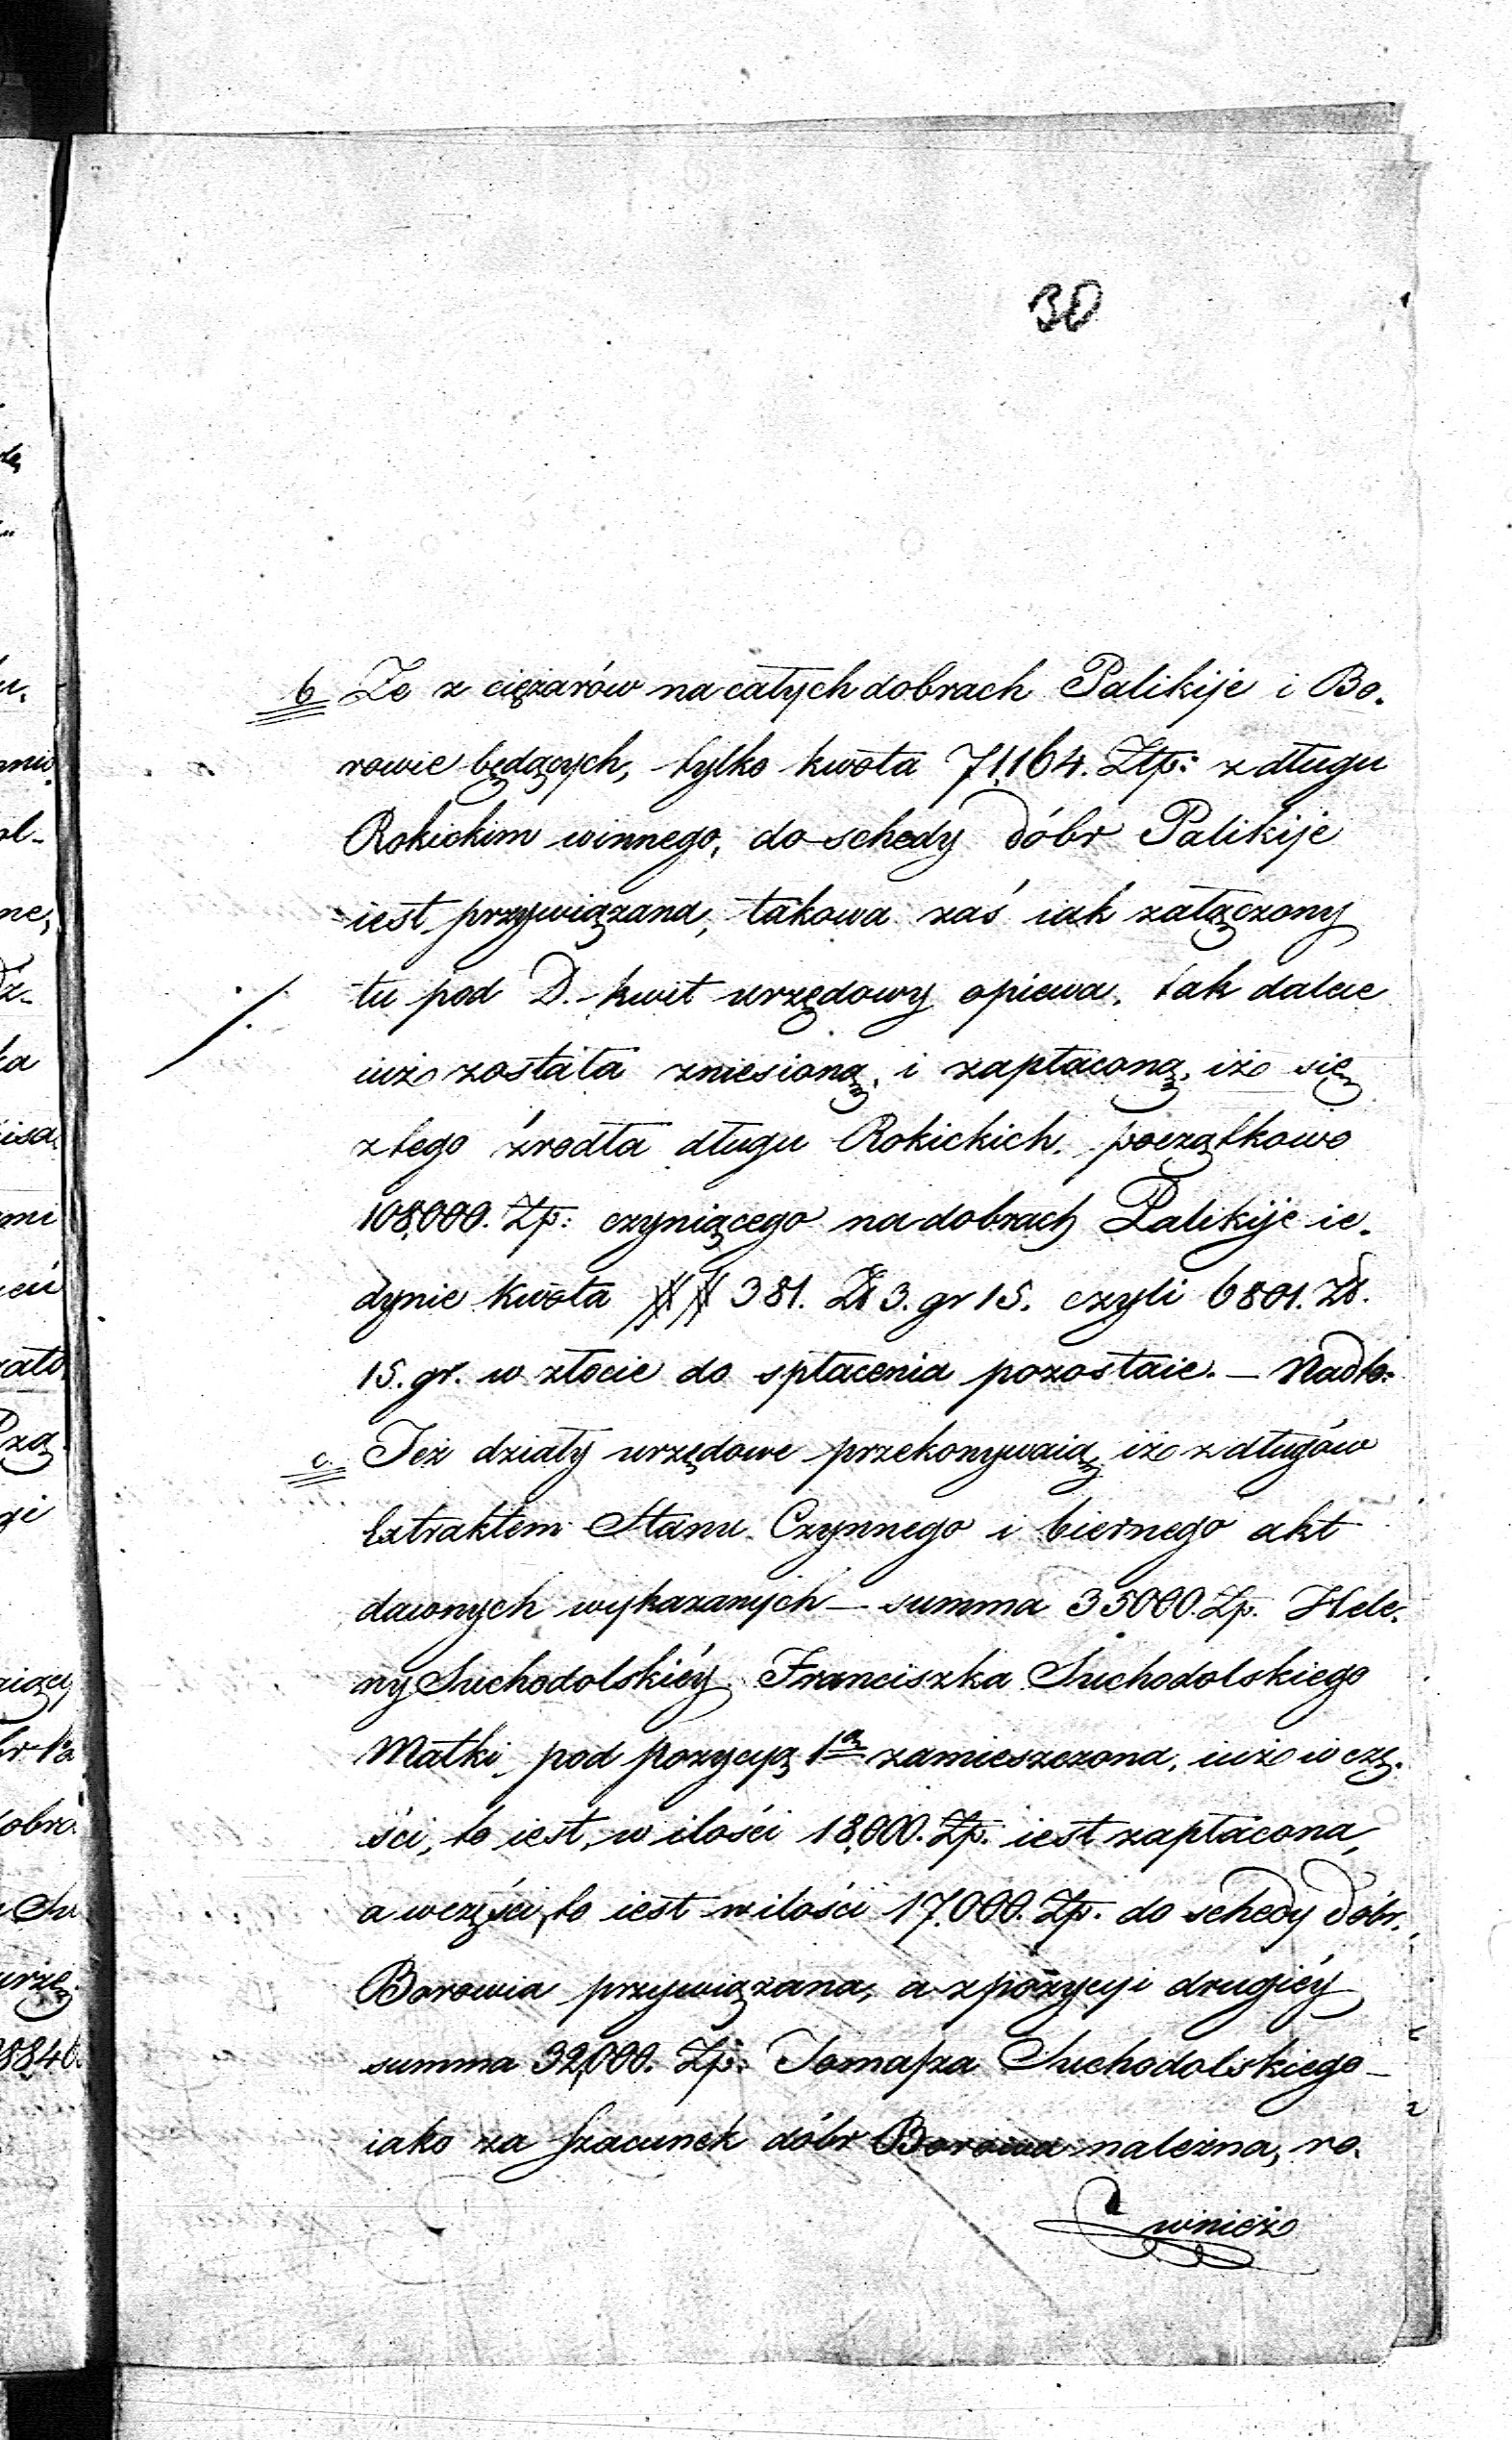 30
b Ze z ciężarów na całych dobrach Palikije i Bo-
rowie będących, tylko kwota 71,164. Złp: z długu
Rokickim winnego, do schedy dóbr Palikije
iest przywiązana, takowa zaś iak załączony
tu pod D. kwit urzędowy opiewa, tak dalece
iuż została zniesioną, i zapłaconą, iż się
z tego źrodła długu Rokickich, początkowo
108,000. Zp: czyniącego na dobrach Palikije ie-
dynie kwota ## 381. Zł 3. gr 15. czyli 6801. Zł.
15. gr. w złocie do spłacenia pozostaie. — Nadto:
c. Też działy urzędowe przekonywaią, iż z długów
Extraktem Stanu Czynnego i biernego akt
dawnych wykazanych — summa 35000. Zp. Hele-
ny Suchodolskiéy Franciszka Suchodolskiego
Matki, pod pozycyą 1ą zamieszczona, iuż w czę-
ści, to iest, w ilości 18,000. Zp. iest zapłacona,
a w części, to iest w ilości 17,000. Zp. do schedy dóbr,
Borowia przywiązana, a z pozycyi drugiéy
summa 32,000. Zp: Tomasza Suchodolskiego
iako za szacunek dóbr Borowia należna, ró-
wnież